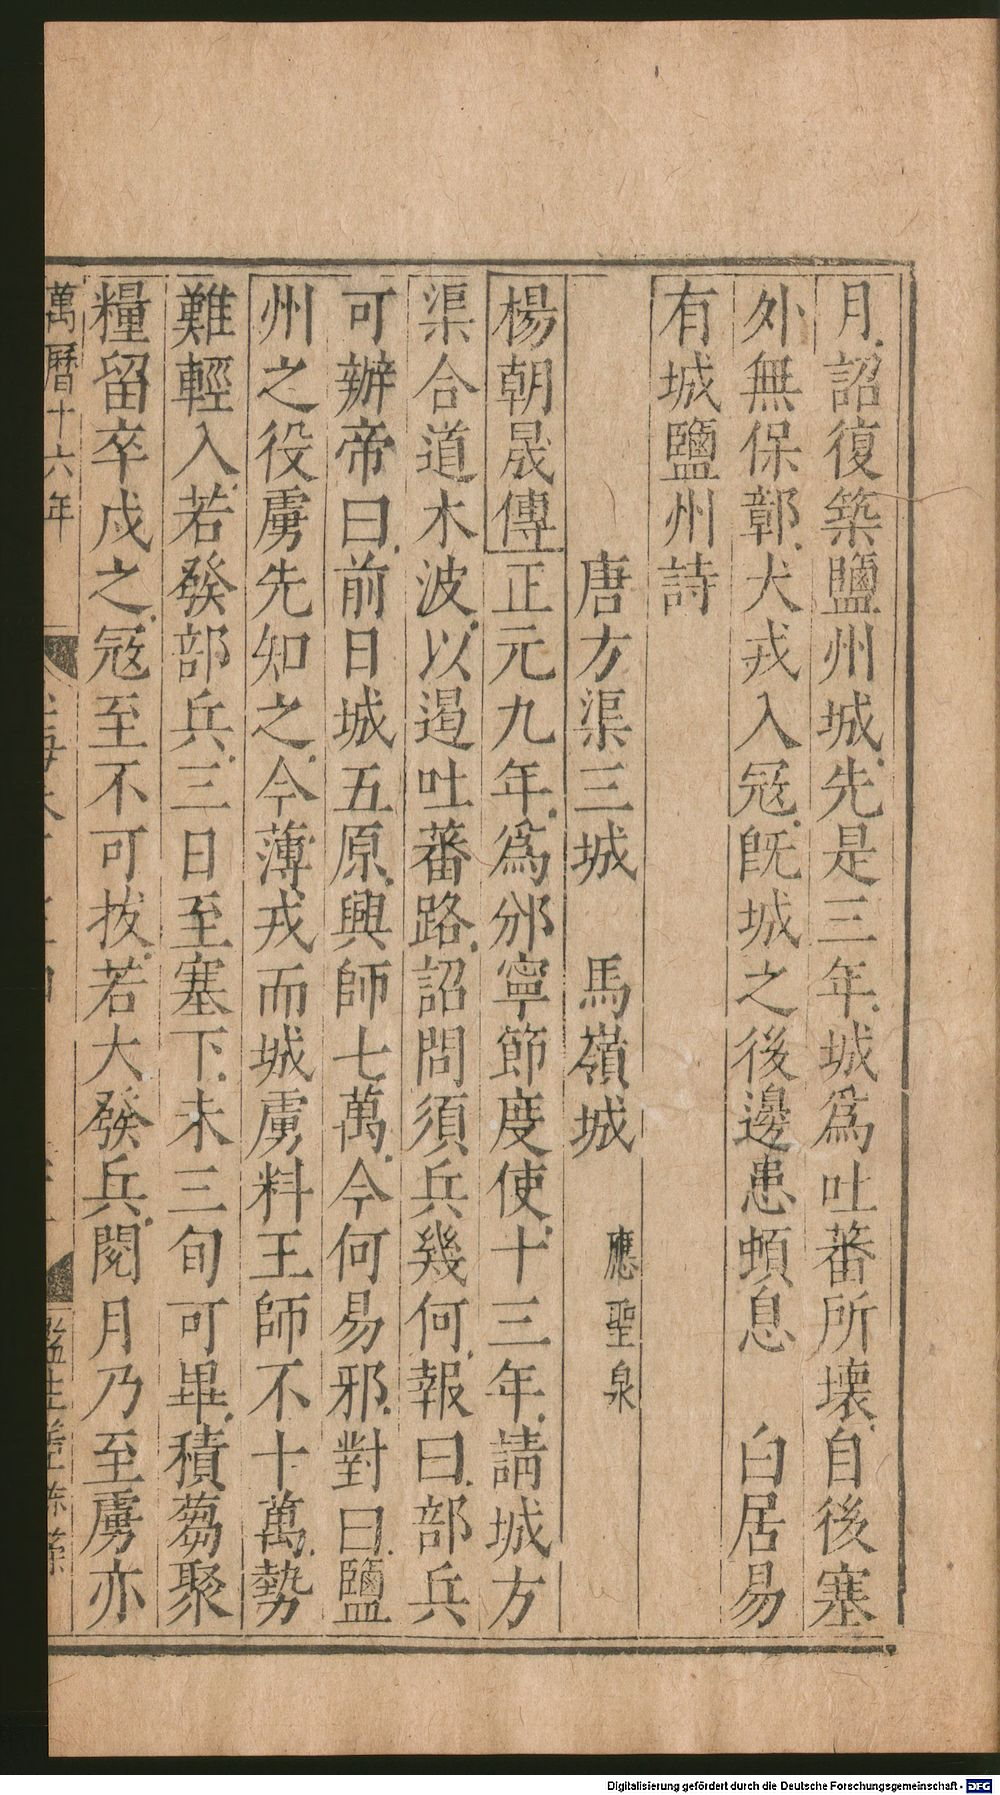 月詔復築鹽州城先是三年城爲吐蕃所壞自後塞
外無保鄣犬戎入寇旣城之後邊患頓息　白居易
有城鹽州詩
唐方渠三城　馬嶺城　應聖泉
楊朝晟傳正元九年爲邠寧節度使十三年請城方
渠合道木波以遏吐蕃路詔問須兵幾何報曰部兵
可辦帝曰前日城五原興師七萬今何易邪對曰鹽
州之役虜先知之今薄戎而城虜料王師不十萬勢
難輕入若發部兵三日至塞下未三旬可畢積蒭聚
糧留卒戍之寇至不可拔若大發兵閱月乃至虜亦
萬曆十六年
Digitalisierung gefördert durch die Deutsche Forschungsgemeinschaft - DFG